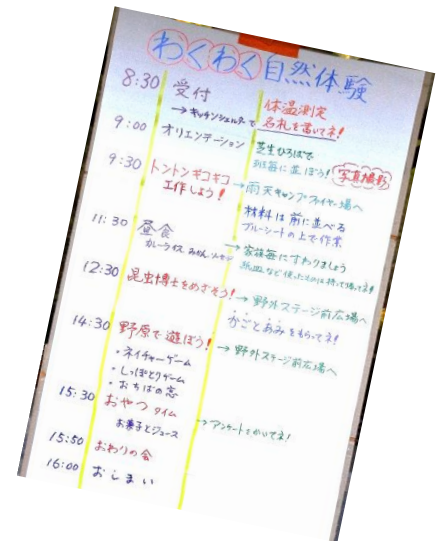 わくわく自然体験
8:30 受付 体温測定
→キッチンシェルターで 名札を書いてネ!
9:00 オリエンテーション 芝生ひろばで
班毎に並ぼう! 写真撮影
9:30 トントンギコギコ →雨天キャンプファイヤー場へ
工作しよう! 材料は前に並べる
ブルーシートの上で作業
11:30 昼食 →家族毎にすわりましょう
カレーライス みかん 紙皿など使ったものは持って帰ってネ!
12:30 昆虫博士をめざそう! →野外ステージ前広場へ
かごとあみをもらってネ!
14:30 野原で遊ぼう! →野外ステージ前広場へ
・ネイチャーゲーム
・しっぽとりゲーム
・おちばの窓
15:30 おやつタイム
お菓子とジュース →アンケートをかいてネ!
15:50 おわりの会
16:00 おしまい